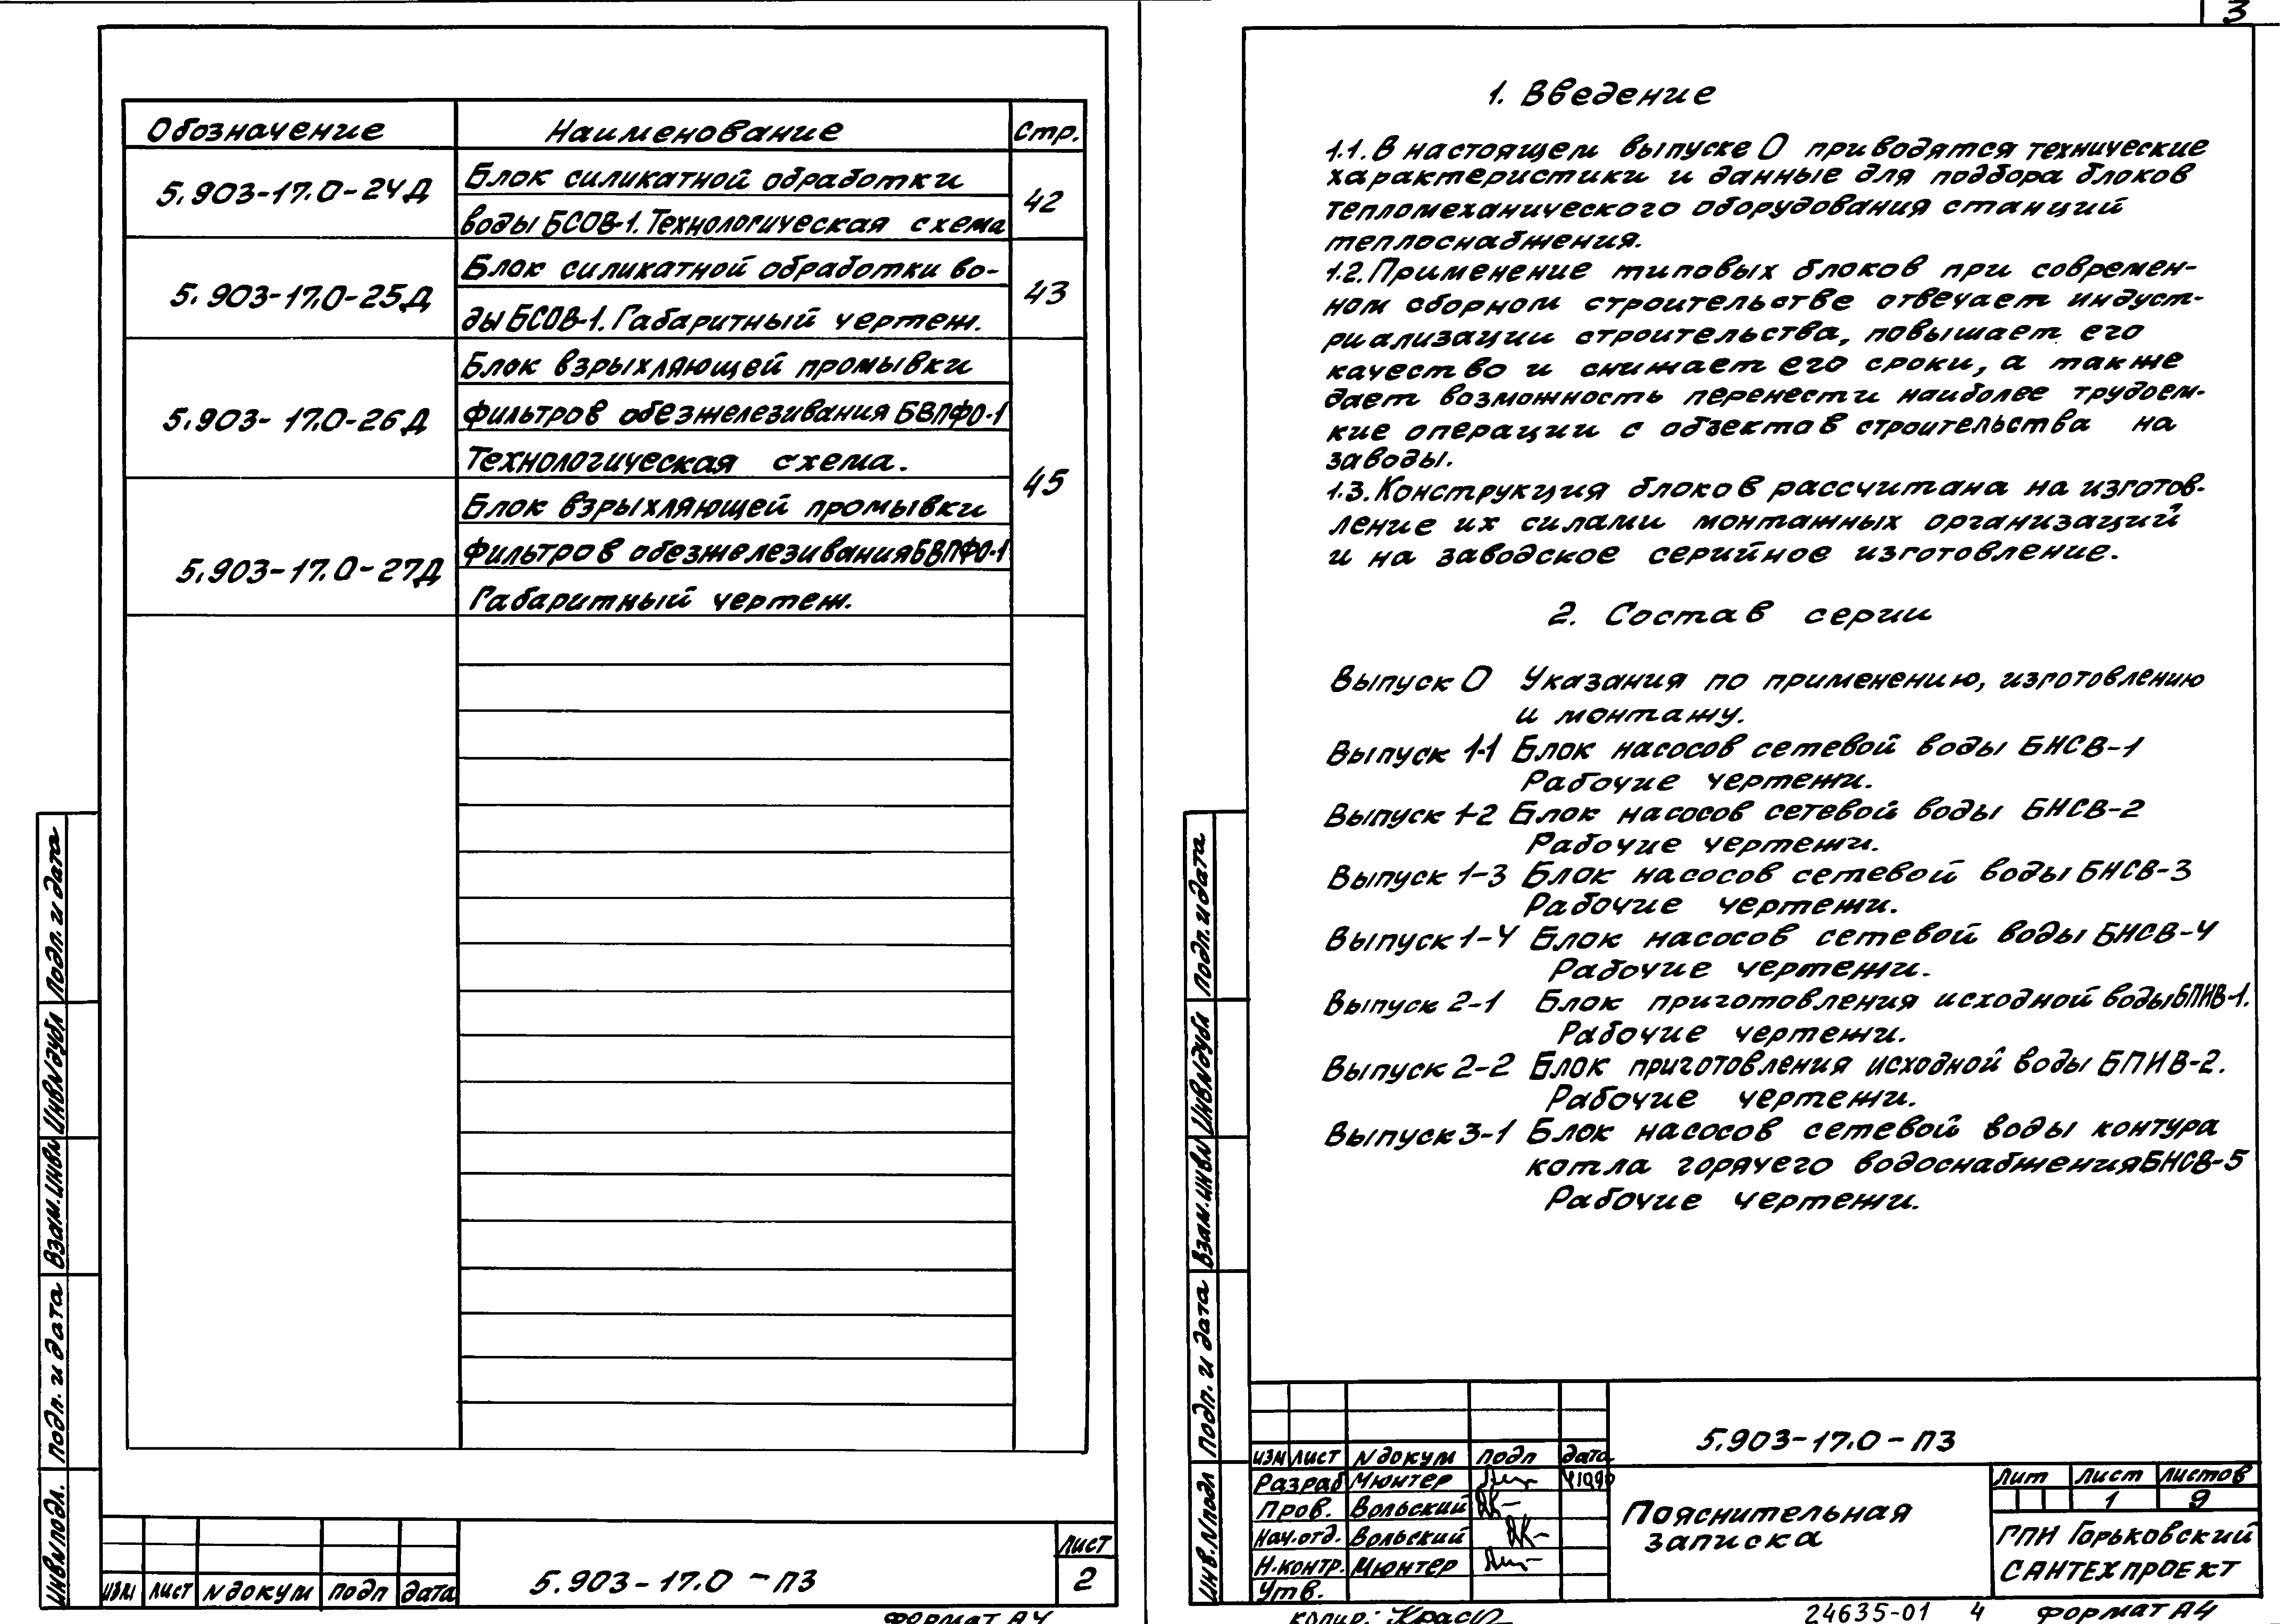 Обозначение Наименование Стр.
5.903-17.0-24Д Блок силикатной обработки
воды БСОВ-1. Технологическая схема 42
5.903-17.0-25Д Блок силикатной обработки во-
ды БСОВ-1. Габаритный чертеж. 43
Блок взрыхляющей промывки
5.903-17.0-26Д фильтров обезжелезивания БВПФО-1
Технологическая схема.
45
Блок взрыхляющей промывки
5.903-17.0-27Д фильтров обезжелезивания БВПФО-1
Габаритный чертеж.
Подп. и дата
Инв N дубл
Взам. инв N
Подп. и дата
Инв N подл.
изм лист N докум подп дата
5.903-17.0-ПЗ
лист
2
Формат А4
3
1. Введение
1.1. В настоящем выпуске 0 приводятся технические
характеристики и данные для подбора блоков
тепломеханического оборудования станций
теплоснабжения.
1.2. Применение типовых блоков при современ-
ном сборном строительстве отвечает индуст-
риализации строительства, повышает его
качество и снижает его сроки, а также
дает возможность перенести наиболее трудоем-
кие операции с объектов строительства на
заводы.
1.3. Конструкция блоков рассчитана на изготов-
ление их силами монтажных организаций
и на заводское серийное изготовление.
2. Состав серии
Выпуск 0 Указания по применению, изготовлению
и монтажу.
Выпуск 1-1 Блок насосов сетевой воды БНСВ-1
Рабочие чертежи.
Выпуск 1-2 Блок насосов сетевой воды БНСВ-2
Рабочие чертежи.
Выпуск 1-3 Блок насосов сетевой воды БНСВ-3
Рабочие чертежи.
Выпуск 1-4 Блок насосов сетевой воды БНСВ-4
Рабочие чертежи.
Выпуск 2-1 Блок приготовления исходной воды БПИВ-1.
Рабочие чертежи.
Выпуск 2-2 Блок приготовления исходной воды БПИВ-2.
Рабочие чертежи.
Выпуск 3-1 Блок насосов сетевой воды контура
котла горячего водоснабжения БНСВ-5
Рабочие чертежи.
Подп. и дата
Инв N дубл
Взам. инв N
Подп. и дата
Инв. N подл
изм лист N докум подп дата
Разраб Мюнтер
Пров. Вольский
Нач. отд. Вольский
Н. контр. Мюнтер
Утв.
5.903-17.0-ПЗ
Пояснительная
записка
Лит Лист Листов
1 9
ГПИ Горьковский
САНТЕХПРОЕКТ
копир:
24635-01 4 Формат А4